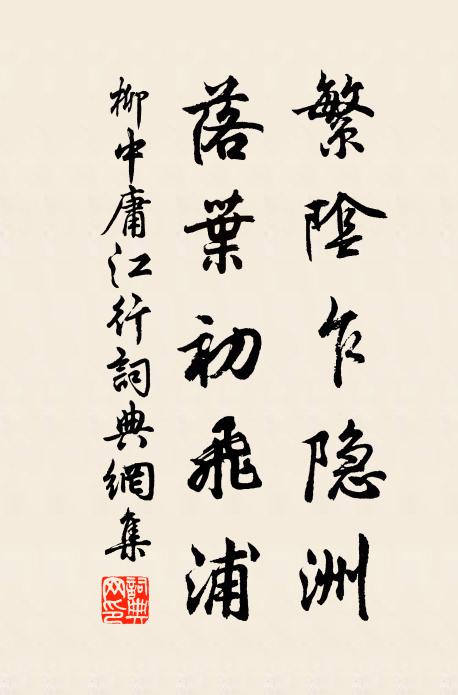 繁陰乍隐洲
落葉初飛浦
柳中庸江行詞典網集
詞典網印